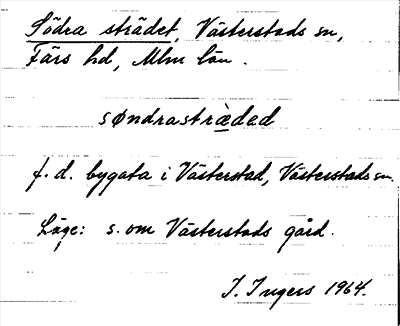 Södra strädet, Västerstads sn,
Färs hd, Mlm län.
søndrasträ̀ded
f.d. bygata i Västerstad, Västerstads sn.
Läge: s. om Västerstads gård.
I. Ingers 1964.